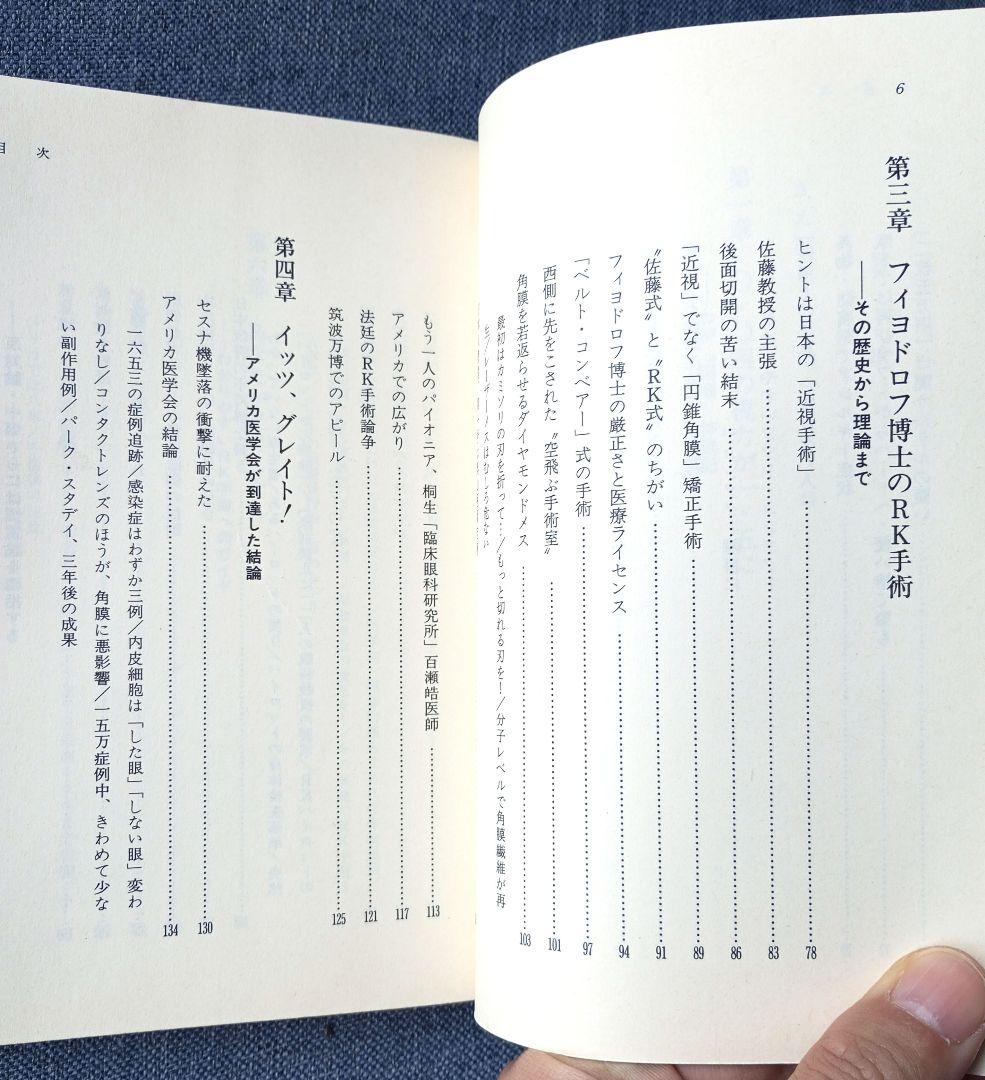 6
第三章　フィヨドロフ博士のRK手術
――その歴史から理論まで
ヒントは日本の「近視手術」 78
佐藤教授の主張 83
後面切開の苦い結末 86
「近視」でなく「円錐角膜」矯正手術 89
〝佐藤式〟と〝RK式〟のちがい 91
フィヨドロフ博士の厳正さと医療ライセンス 94
「ベルト・コンベアー」式の手術 97
西側に先をこされた〝空飛ぶ手術室〟 101
角膜を若返らせるダイヤモンドメス 103
最初はカミソリの刃を折って…/もっと切れる刃を!/分子レベルで角膜繊維が再
目　次
もう一人のパイオニア、桐生「臨床眼科研究所」百瀬皓医師 113
アメリカでの広がり 117
法廷のRK手術論争 121
筑波万博でのアピール 125
第四章　イッツ、グレイト!
――アメリカ医学会が到達した結論
セスナ機墜落の衝撃に耐えた 130
アメリカ医学会の結論 134
一六五三の症例追跡/感染症はわずか三例/内皮細胞は「した眼」「しない眼」変わ
りなし/コンタクトレンズのほうが、角膜に悪影響/一五万症例中、きわめて少な
い副作用例/パーク・スタデイ、三年後の成果